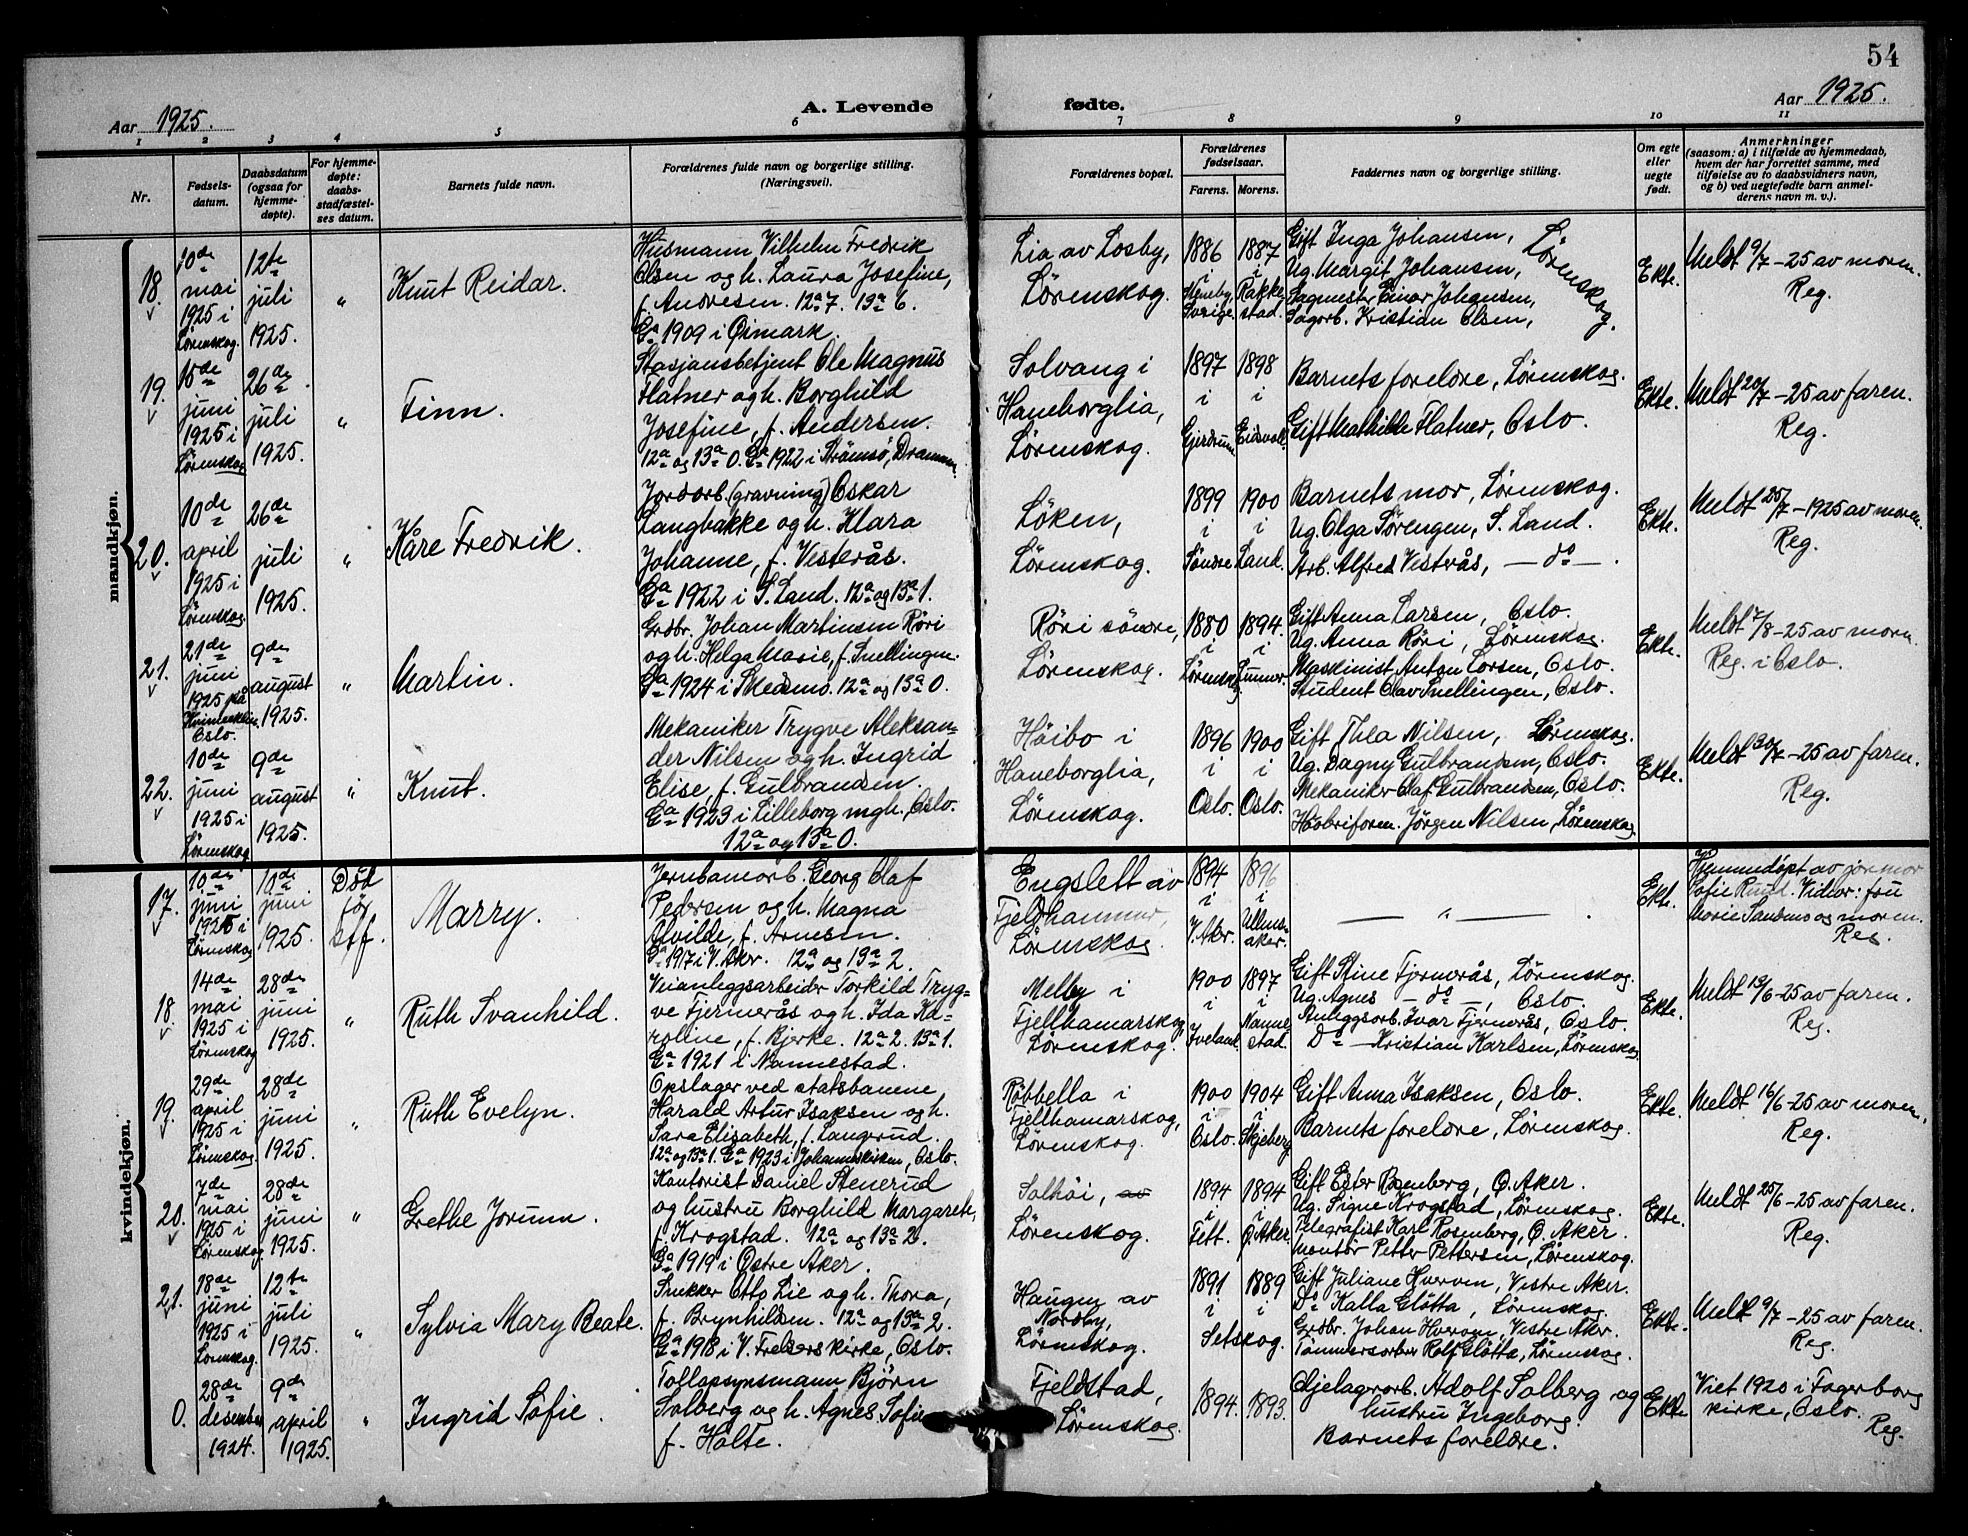 54
Aar 1925.
A. Levende
fødte.
Aar 1925.
1 2 3 4 5 6 7 8 9 10 11
Nr.
Fødsels-
datum.
Daabsdatum
(ogsaa for
hjemme-
døpte).
For hjemme-
døpte:
daabs-
stadfæstel-
ses datum.
Barnets fulde navn.
Forældrenes fulde navn og borgerlige stilling.
(Næringsvei).
Forældrenes bopæl.
Forældrenes
fødselsaar.
Farens. Morens.
Faddernes navn og borgerlige stilling.
Om egte
eller
uegte
født.
Anmerkninger
(saasom: a) i tilfælde av hjemmedaab,
hvem der har forrettet samme, med
tilføielse av to daabsvidners navn,
og b) ved uegtefødte barn anmel-
derens navn m. v.).
mandkjøn.
18.
10de
mai
1925 i
Lørenskog.
12te
juli
1925.
"
Knut Reidar.
Husmann Vilhelm Fredrik
Olsen og h. Laura Josefine,
f. Andresen. 12a 7. 13a 6.
Ga 1909 i Øimark.
Lia av Losby,
Lørenskog.
1886
i
Sverige.
1887
i
Rakke-
stad.
Gift Inga Johansen,
Ug. Margit Johansen,
Sagmester Einar Johansen,
Sagarb. Kristian Olsen,
Lørenskog.
Ekte.
Meldt 9/7 - 25 av moren.
Reg.
19.
15de
juni
1925 i
Lørenskog.
26de
juli
1925.
"
Finn.
Stasjonsbetjent Ole Magnus
Flatner og h. Borghild
Josefine, f. Andersen.
12a og 13a 0. Ga 1922 i Strømsø, Drammen.
Solvang i
Haneborglia,
Lørenskog.
1897
i
Gjerdrum
1898
i
Eidsvoll.
Barnets foreldre, Lørenskog.
Gift Mathilde Flatner, Oslo.
Ekte.
Meldt 20/7 - 25 av faren.
Reg.
20.
10de
april
1925 i
Lørenskog.
26de
juli
1925.
"
Kåre Fredrik.
Jordarb. (gravning) Oskar
Langbakke og h. Klara
Johanne, f. Vesterås.
Ga 1922 i S. Land. 12a og 13a 1.
Løken,
Lørenskog.
1899
i
Søndre
1900
i
Land.
Barnets mor, Lørenskog.
Ug. Olga Sørengen, S. Land.
Arb. Alfred Vestrås, — do — .
Ekte.
Meldt 25/7 - 1925 av moren.
Reg.
21.
21de
juni
1925 på
Oslo.
9de
august
1925.
"
Martin.
Grdbr. Johan Martinsen Røri
og h. Helga Marie, f. Snellingen.
Ga 1924 i Skedsmo. 12a og 13a 0.
Røri søndre,
Lørenskog.
1880
i
Lørenskog
1894.
i
Lunner.
Gift Anna Larsen, Oslo.
Ug. Anna Røri, Lørenskog.
Maskinist Anton Larsen, Oslo.
Student Olav Snellingen, Oslo.
Ekte.
Meldt 7/8 - 25 av moren.
Reg. i Oslo.
22.
10de
juni
1925 i
Lørenskog
9de
august
1925.
"
Knut.
Mekaniker Trygve Aleksan-
der Nilsen og h. Ingrid
Elise, f. Gulbrandsen.
Ga 1923 i Lilleborg mgh., Oslo.
12a og 13a 0.
Høibo i
Haneborglia,
Lørenskog.
1896
i
Oslo.
1900
i
Oslo.
Gift Thea Nilsen, Lørenskog.
Ug. Dagny Gulbrandsen, Oslo.
Mekaniker Olaf Gulbrandsen, Oslo.
Jørgen Nilsen, Lørenskog.
Ekte.
Meldt 30/7 - 25 av faren.
Reg.
kvindekjøn.
17.
10de
juni
1925 i
Lørenskog
10de
juni
1925.
Død
før
stf.
Marry.
Jernbanearb. Georg Olaf
Pedersen og h. Magna
Alvilde, f. Arnesen.
Ga 1917 i V. Aker. 12a og 13a 2.
Engslett av
Fjeldhammer,
Lørenskog.
1894
i
V. Aker.
1896
i
Ullens-
aker.
— " — .
Ekte.
Hjemmedøpt av jormor
Sofie Ruud. Vidner: fru
Marie Sandmo og moren.
Reg.
18.
14de
mai
1925 i
Lørenskog
28de
juni
1925.
"
Ruth Svanhild.
Veianleggsarbeider Torkild Tryg-
ve Fjermerås og h. Ida Ka-
roline, f. Bjerke. 12a 2. 13a 1.
Ga 1921 i Nannestad.
Melby i
Fjellhamarskog,
Lørenskog.
1900
i
Iveland.
1897
i
Nanne-
stad.
Gift Stine Fjermerås, Lørenskog.
Ug. Agnes — do —, Oslo.
Anleggsarb. Ivar Fjermerås, Oslo.
Do — Kristian Karlsen, Lørenskog
Ekte.
Meldt 13/6 - 25 av faren.
Reg.
19.
29de
april
1925 i
Lørenskog.
28de
juni
1925.
"
Ruth Evelyn.
Opslager ved statsbanene
Harald Artur Isaksen og h.
Sara Elisabeth, f. Langerud.
12a og 13a 1. Ga 1923 i Johanneskirken, Oslo.
Røbbella i
Fjellhamarskog,
Lørenskog.
1900
i
Oslo.
1904
i
Skjeberg
Gift Anna Isaksen, Oslo.
Barnets foreldre, Lørenskog.
Ekte.
Meldt 16/6 - 25 av moren.
Reg.
20.
7de
mai
1925 i
Lørenskog
28de
juni
1925.
"
Grethe Jorunn.
Kontorist Daniel Stenerud
og hustru Borghild Margarete,
f. Krogstad. 12a og 13a 2.
Ga 1919 i Østre Aker.
Solhøi, av
Lørenskog.
1894
i
Fett.
1894
i
Ø. Aker.
Gift Ester Rosenberg, Ø. Aker.
Ug. Signe Krogstad, Lørenskog.
Telegrafist Karl Rosenberg, Ø. Aker.
Montør Petter Pettersen, Lørenskog.
Ekte.
Meldt 25/6 - 25 av faren.
Reg.
21.
18de
juni
1925 i
Lørenskog.
12te
juli
1925.
"
Sylvia Mary Beate.
Snekker Otto Lie og h. Thora,
f. Brynhildsen. 12a og 13a 2.
Ga 1918 i V. Frelsers kirke, Oslo.
Haugen av
Nordby,
Lørenskog.
1891
i
1889
i
Setskog.
Gift Juliane Hverven, Vestre Aker.
Do Kalla Gløtta, Lørenskog.
Grdbr. Johan Hverven, Vestre Aker.
Rolf Gløtta, Lørenskog.
Ekte.
Meldt 9/7 - 25 av faren.
Reg.
0.
28de
desember
1924.
9de
april
1925.
"
Ingrid Sofie.
Tollopsynsmann Bjørn
Solberg og h. Agnes Sofie
f. Holte.
Fjeldstad,
Lørenskog.
1894.
1893.
Oljelagerarb. Adolf Solberg og
hustru Ingeborg.
Barnets foreldre.
Ekte
Viet 1920 i Fagerborg
kirke, Oslo.
Reg.